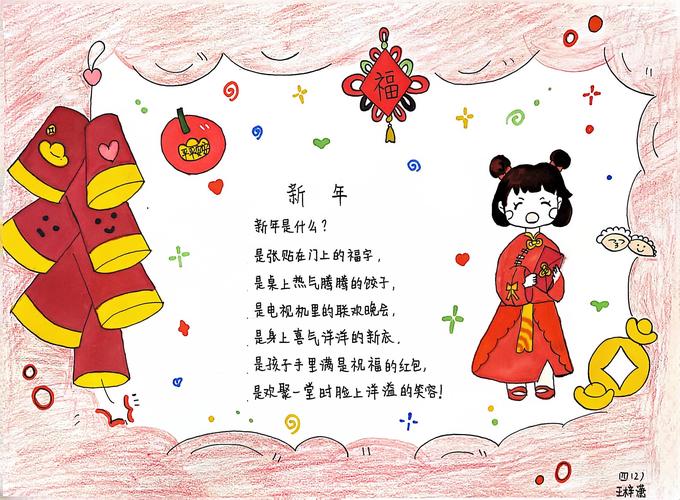 福
新年
新年是什么？
是张贴在门上的福字，
是桌上热气腾腾的饺子，
是电视机里的联欢晚会，
是身上喜气洋洋的新衣．
是孩子手里满是祝福的红包，
是欢聚一堂时脸上洋溢的笑容！
四（2）